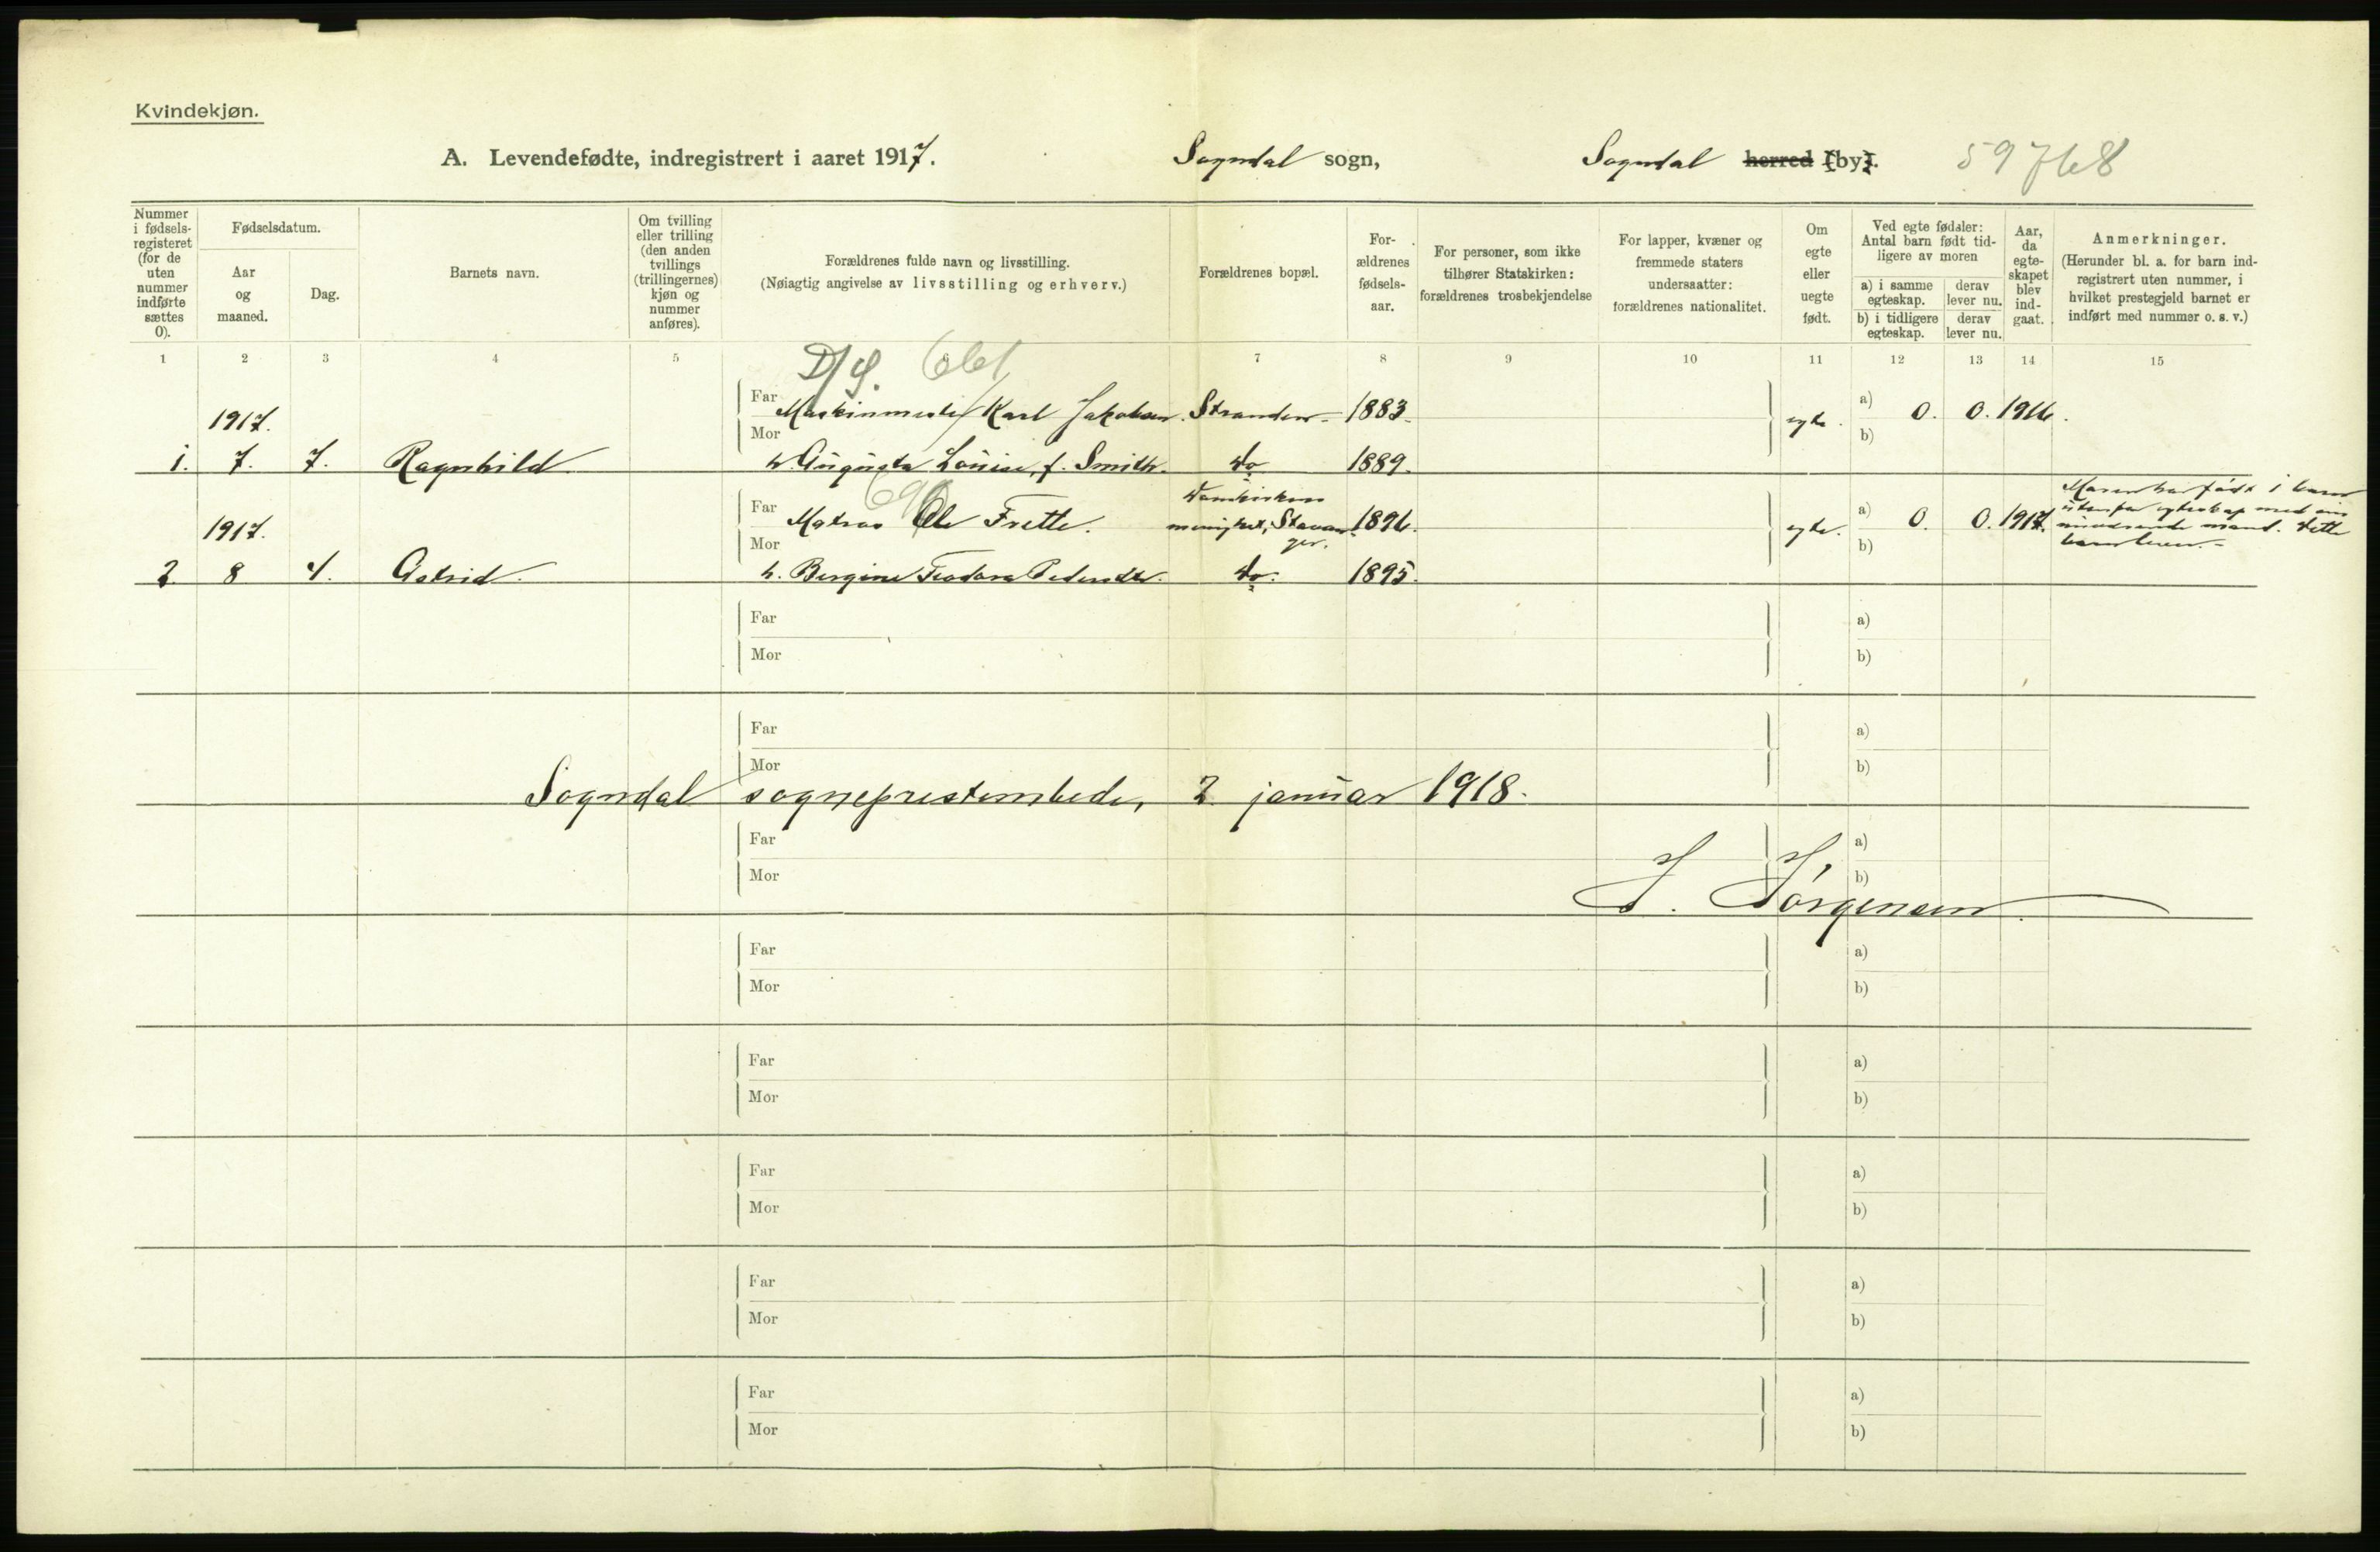 Kvindekjøn.
A. Levendefødte, indregistrert i aaret 1917. Sogndal sogn, Sogndal herred (by). 59768
Nummer i fødselsregisteret (for de uten nummer indførte sættes 0).
Fødselsdatum.
Aar og maaned.
Dag.
Barnets navn.
Om tvilling eller trilling (den anden tvillings (trillingernes) kjøn og nummer anføres).
Forældrenes fulde navn og livsstilling.
(Nøiagtig angivelse av livsstilling og erhverv.)
Forældrenes bopæl.
Forældrenes fødselsaar.
For personer, som ikke tilhører Statskirken: forældrenes trosbekjendelse
For lapper, kvæner og fremmede staters undersaatter: forældrenes nationalitet.
Om egte eller uegte født.
Ved egte fødsler: Antal barn født tidligere av moren
a) i samme egteskap.
derav lever nu.
b) i tidligere egteskap.
derav lever nu.
Aar, da egteskapet blev indgaat.
Anmerkninger.
(Herunder bl. a. for barn indregistrert uten nummer, i hvilket prestegjeld barnet er indført med nummer o. s. v.)
1 2 3 4 5 6 7 8 9 10 11 12 13 14 15
D/S. 661
Far Maskinmester Karl Jakobsen. Stranden 1883. a) 0. 0. 1916.
1917. Mor egte. b)
1. 7. 7. Ragnhild h. Augusta Louise, f. Smith. do 1889.
69
Far Matros Ole Frette. Domkirkens menighet, Stavanger. 1896. a) 0. 0. 1917. Moren har født 1 barn utenfor egteskap med sin nuværende mand. Dette barn lever.
1917. Mor egte. b)
2 8 4. Astrid. h. Bergine Teodora Pedersdtr. do. 1895.
Far a)
Mor b)
Far a)
Mor b)
Sogndal sogneprestembede, 2 januar 1918.
Far a)
Mor b)
J. Jørgensen.
Far a)
Mor b)
Far a)
Mor b)
Far a)
Mor b)
Far a)
Mor b)
Far a)
Mor b)